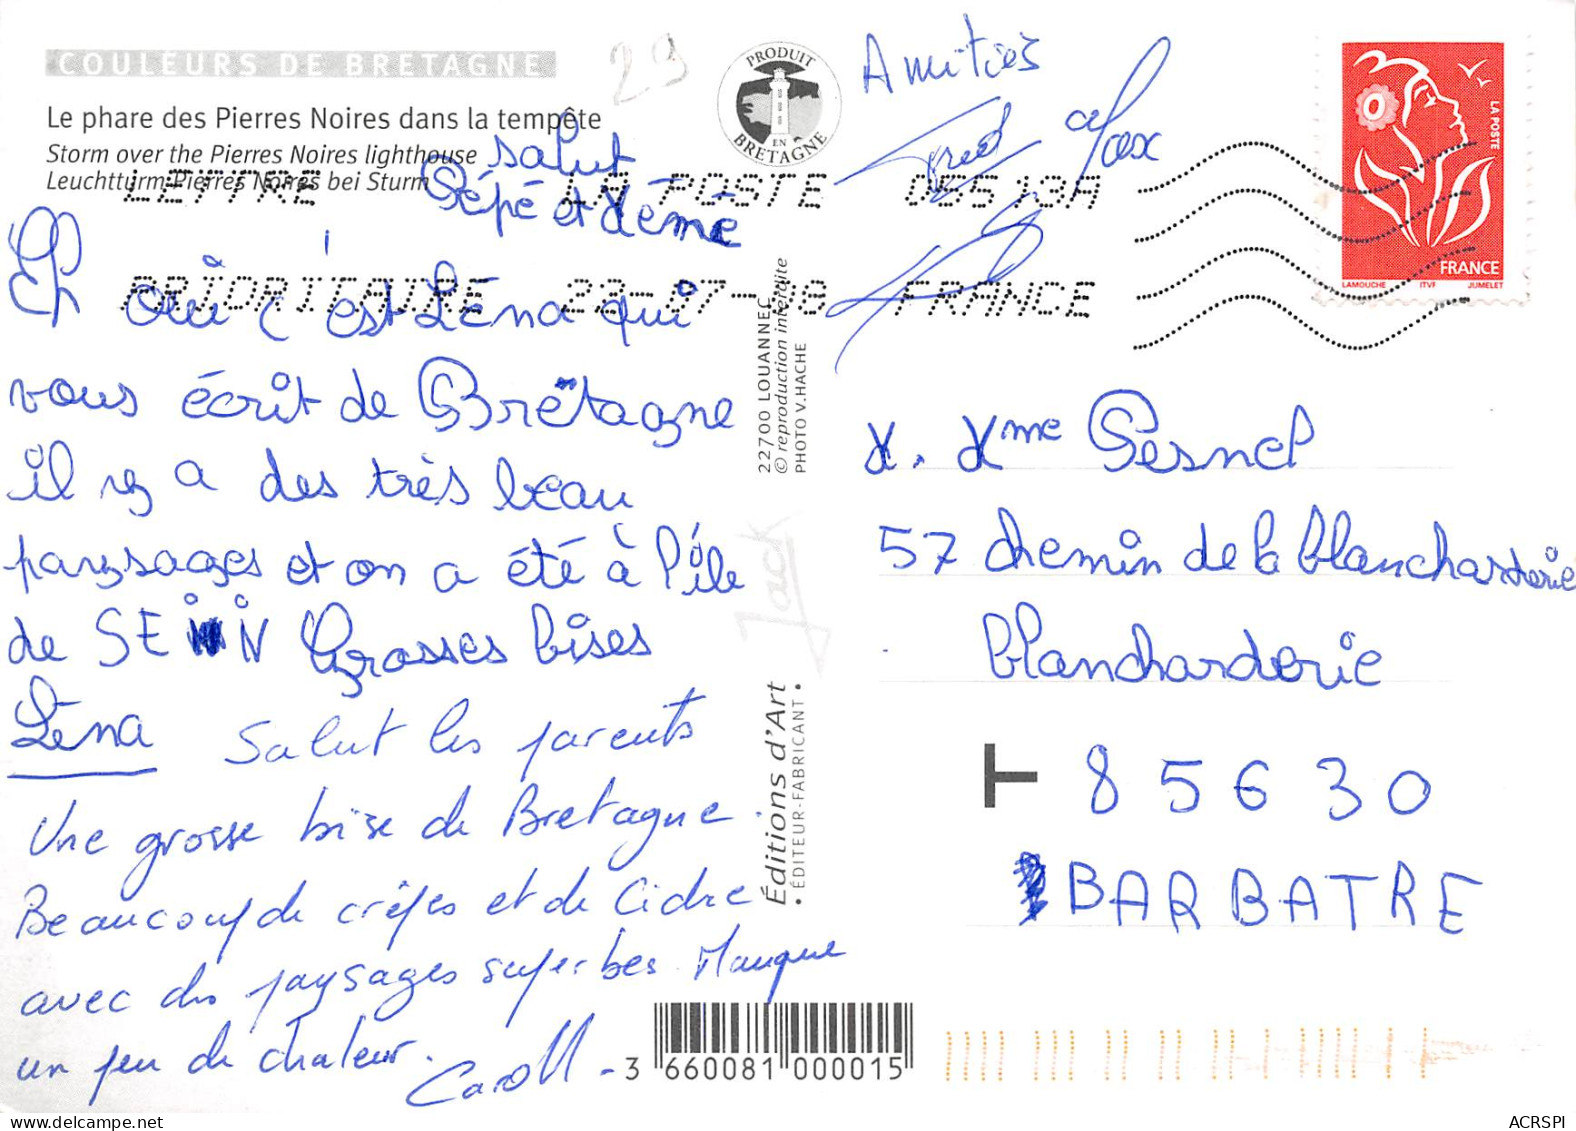 COULEURS DE BRETAGNE
Le phare des Pierres Noires dans la tempête
Storm over the Pierres Noires lighthouse
Leuchtturm Pierres Noires bei Sturm
29
PRODUIT
EN
BRETAGNE
LETTRE
PRIORITAIRE
LA POSTE 06513A
FRANCE
Salut
Pépé et Mémé
Eh oui c'est Léna qui
vous écrit de Brëtagne
il ny a des très beau
paysages et on a été à l'île
de SEIN Grosses bises
Léna
Salut les parents
Une grosse bise de Bretagne.
Beaucoup de crêpes et de Cidre
avec des paysages superbes. Manque
un peu de chaleur.
Amitiés
Fred Max
22700 LOUANNEC
© reproduction interdite
PHOTO V.HACHE
Jack
Éditions d'Art
• ÉDITEUR-FABRICANT •
3 660081 000015
LA POSTE
FRANCE
LAMOUCHE ITVF JUMELET
M. Mme Pesnel
57 chemin de la blancharderie
blancharderie
85630
BARBATRE
ACRSPI